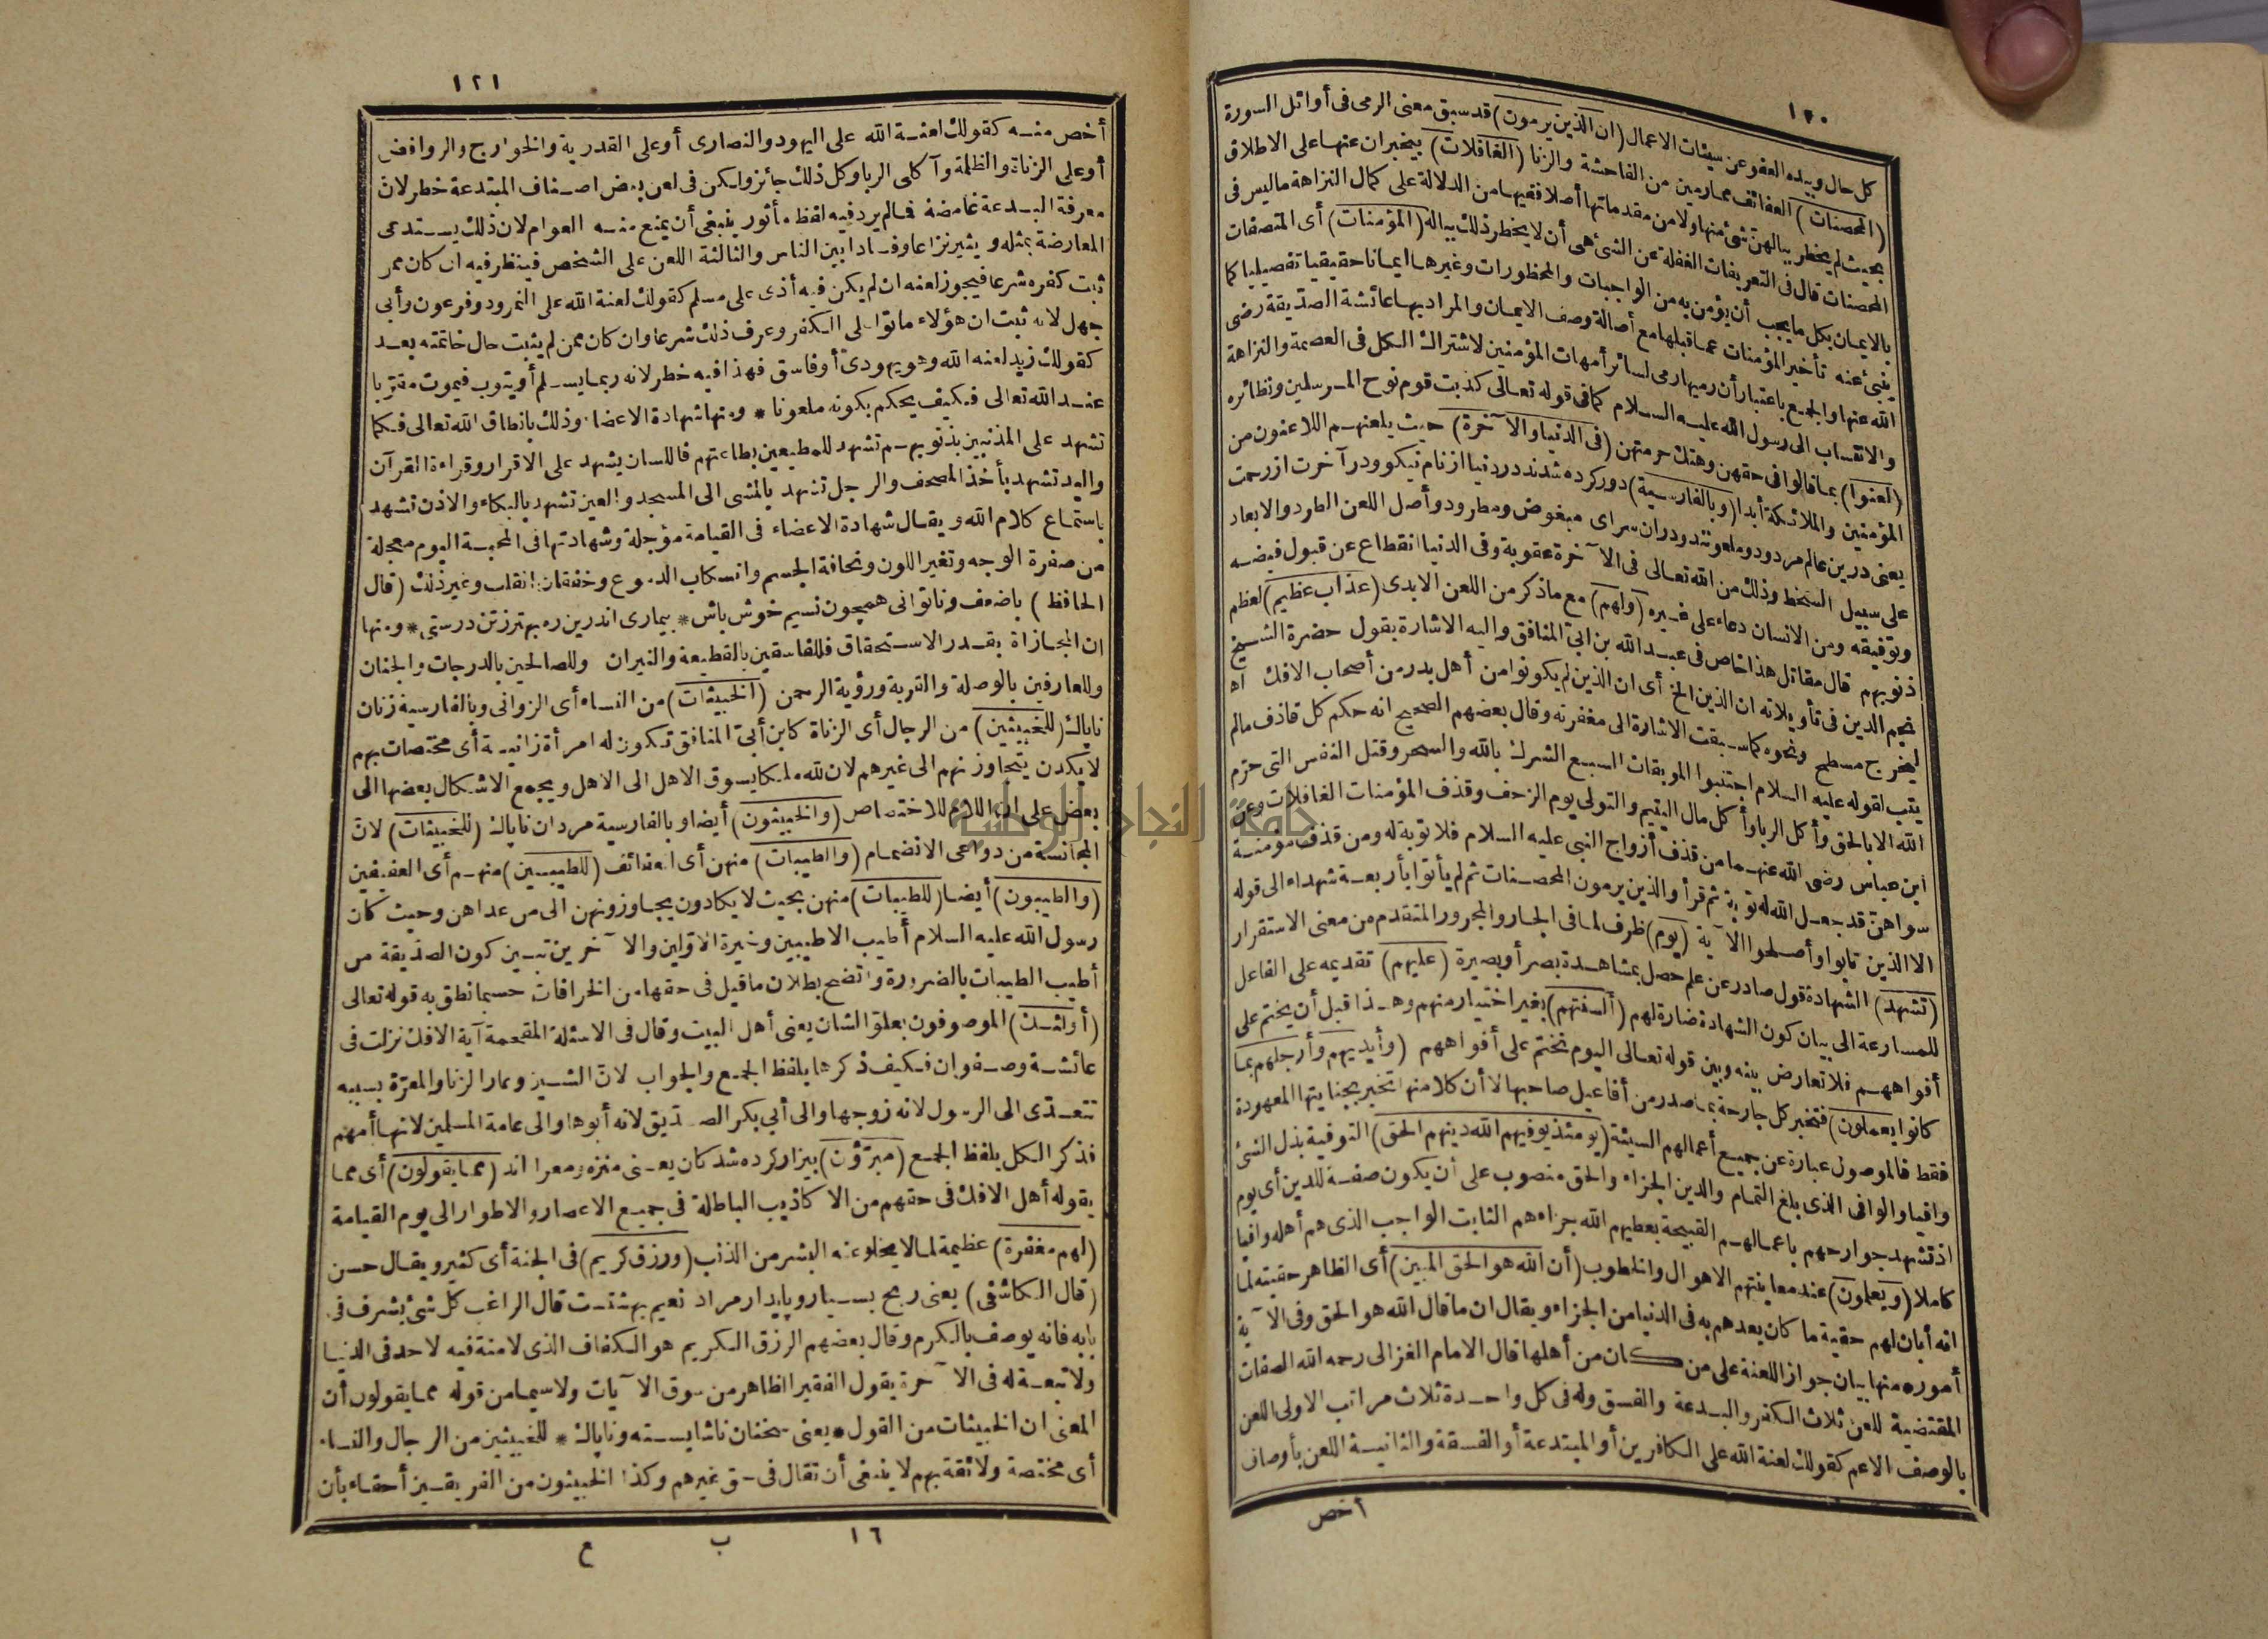 ١٢٠
كل حال وبيده العفو عن سيئات الاعمال (ان الذين يرمون) قد سبق معنى الرمى فى أوائل السورة
(المحصنات) العفائف مما رمين من الفاحشة والزنا (الغافلات) بيخبران عنها على الاطلاق
بحيث لم يخطر ببالهن شئ منها ولا من مقدماتها أصلا ففيها من الدلالة على كمال النزاهة ما ليس فى
المحصنات قال فى التعريفات الغفلة عن الشئ هى أن لا يخطر ذلك بباله (المؤمنات) أى المتصفات
بالايمان بكل ما يجب أن يؤمن به من الواجبات والمحظورات وغيرها ايمانا حقيقيا تفصيليا كما
ينبئ عنه تأخير المؤمنات عما قبلها مع أصالة وصف الايمان والمراد بها عائشة الصدّيقة رضى
الله عنها والجمع باعتبار أن رميها رمى لسائر أمهات المؤمنين لاشتراك الكل فى العصمة والنزاهة
والانتساب الى رسول الله عليه السلام كما فى قوله تعالى كذبت قوم نوح المرسلين ونظائره
(لعنوا) بما قالوا فى حقهن وهتك حرمتهن (فى الدنيا والآخرة) حيث يلعنهم اللاعنون من
المؤمنين والملائكة أبدا (وبالفارسية) دور كرده شدند در دنيا از نام نيكو ودر آخرت از رحمت
يعنى درين عالم مردود وملعونند ودران سراى مبغوض ومطرود وأصل اللعن الطرد والابعاد
على سبيل السخط وذلك من الله تعالى فى الآخرة عقوبة وفى الدنيا انقطاع عن قبول فيضه
وتوفيقه ومن الانسان دعاء على غيره (ولهم) مع ما ذكر من اللعن الابدى (عذاب عظيم) لعظم
ذنوبهم قال مقاتل هذا خاص فى عبد الله بن ابىّ المنافق واليه الاشارة بقول حضرة الشيخ
نجم الدين فى تأويلاته ان الذين الخ أى ان الذين لم يكونوا من أهل بدر من أصحاب الافك اه
ليخرج مسطح ونحوه كما سبقت الاشارة الى مغفرته وقال بعضهم الصحيح انه حكم كل قاذف مالم
يتب لقوله عليه السلام اجتنبوا الموبقات السبع الشرك بالله والسحر وقتل النفس التى حرّم
الله الا بالحق وأكل الربا وأكل مال اليتيم والتولى يوم الزحف وقذف المؤمنات الغافلات وعن
ابن عباس رضى الله عنهما من قذف أزواج النبى عليه السلام فلا توبة له ومن قذف مؤمنة
سواهنّ قد جعل الله له توبة ثم قرأ والذين يرمون المحصنات ثم لم يأتوا بأربعة شهداء الى قوله
الا الذين تابوا وأصلحوا الآية (يوم) ظرف لما فى الجار والمجرور المتقدم من معنى الاستقرار
(تشهد) الشهادة قول صادر عن علم حصل بمشاهدة بصر أو بصيرة (عليهم) تقديمه على الفاعل
للمسارعة الى بيان كون الشهادة ضارة لهم (ألسنتهم) بغير اختيار منهم وهذا قبل أن يختم على
أفواههم فلا تعارض بينه وبين قوله تعالى اليوم نختم على أفواههم (وأيديهم وأرجلهم بما
كانوا يعملون) فتخبر كل جارحة بما صدر من أفاعيل صاحبها لا أن كلا منها تخبر بجنايتها المعهودة
فقط فالموصول عبارة عن جميع أعمالهم السيئة (يومئذ يوفيهم الله دينهم الحق) التوفية بذل الشئ
وافيا والوافى الذى بلغ التمام والدين الجزاء والحق منصوب على أن يكون صفة للدين أى يوم
اذ تشهد جوارحهم باعمالهم القبيحة يعطيهم الله جزاءهم الثابت الواجب الذى هم أهله وافيا
كاملا (ويعلمون) عند معاينتهم الاهوال والخطوب (أن الله هو الحق المبين) أى الظاهر حقيته لما
انه أبان لهم حقية ما كان يعدهم به فى الدنيا من الجزاء ويقال ان ما قال الله هو الحق وفى الآية
أمور منها بيان جواز اللعنة على من كان من أهلها قال الامام الغزالى رحمه الله الصفات
المقتضية للعن ثلاث الكفر والبدعة والفسق وله فى كل واحدة ثلاث مراتب الاولى اللعن
بالوصف الاعم كقولك لعنة الله على الكافرين أو المبتدعة أو الفسقة والثانية اللعن بأوصاف
أخص
١٢١
أخص منه كقولك لعنة الله على اليهود والنصارى أو على القدرية والخوارج والروافض
أو على الزناة والظلمة وآكلى الربا وكل ذلك جائز ولكن فى لعن بعض اصناف المبتدعة خطر لان
معرفة البدعة غامضة فما لم يرد فيه لفظ مأثور ينبغى أن يمنع منه العوام لان ذلك يستدعى
المعارضة بمثله ويثير نزاعا وفسادا بين الناس والثالثة اللعن على الشخص فينظر فيه ان كان ممن
ثبت كفره شرعا فيجوز لعنه ان لم يكن فيه أذى على مسلم كقولك لعنة الله على النمرود وفرعون وأبى
جهل لانه ثبت ان هؤلاء ماتوا على الكفر وعرف ذلك شرعا وان كان ممن لم يثبت حال خاتمته بعد
كقولك زيد لعنه الله وهو يهودىّ أو فاسق فهذا فيه خطر لانه ربما يسلم أو يتوب فيموت مقرّبا
عند الله تعالى فكيف يحكم بكونه ملعونا * ومنها شهادة الاعضاء وذلك بانطاق الله تعالى فكما
تشهد على المذنبين بذنوبهم تشهد للمطيعين بطاعتهم فاللسان يشهد على الاقرار وقراءة القرآن
واليد تشهد بأخذ المصحف والرجل تشهد بالمشى الى المسجد والعين تشهد بالبكاء والاذن تشهد
باستماع كلام الله ويقال شهادة الاعضاء فى القيامة مؤجلة وشهادتها فى المحبة اليوم معجلة
من صفرة الوجه وتغير اللون ونحافة الجسم وانسكاب الدموع وخفقان القلب وغير ذلك (قال
الحافظ) با ضعف وناتوانى همچون نسيم خوش باش * بيمارى اندرين ره بهتر زتن درستى * ومنها
ان المجازاة بقدر الاستحقاق فللفاسقين بالقطيعة والنيران وللصالحين بالدرجات والجنان
وللعارفين بالوصلة والقربة ورؤية الرحمن (الخبيثات) من النساء أى الزوانى وبالفارسية زنان
ناپاك (للخبيثين) من الرجال أى الزناة كابن أبىّ المنافق تكون له امرأة زانية أى مختصات بهم
لا يكدن يتجاوزنهم الى غيرهم لان لله ملكا يسوق الاهل الى الاهل ويجمع الاشكال بعضها الى
بعض على ان اللام للاختصاص (والخبيثون) أيضا وبالفارسية مردان ناپاك (للخبيثات) لان
المجانسة من دواعى الانضمام (والطيبات) منهن أى العفائف (للطيبين) منهم أى العفيفين
(والطيبون) أيضا (للطيبات) منهن بحيث لا يكادون يجاوزونهن الى من عداهن وحيث كان
رسول الله عليه السلام أطيب الاطيبين وخيرة الاوّلين والآخرين تبين كون الصدّيقة من
أطيب الطيبات بالضرورة واتضح بطلان ما قيل فى حقها من الخرافات حسبما نطق به قوله تعالى
(أولئك) الموصوفون بعلوّ الشان يعنى أهل البيت وقال فى الاسئلة المقحمة آية الافك نزلت فى
عائشة وصفوان فكيف ذكرها بلفظ الجمع والجواب لان الشين وعار الزنا والمعرّة بسببه
تتعدّى الى الرسول لانه زوجها والى أبى بكر الصدّيق لانه أبوها والى عامة المسلمين لانها أمهم
فذكر الكل بلفظ الجمع (مبرّؤن) بيزار كرده شدكان يعنى منزه ومعرا اند (مما يقولون) أى مما
يقوله أهل الافك فى حقهم من الاكاذيب الباطلة فى جميع الاعصار والاطوار الى يوم القيامة
(لهم مغفرة) عظيمة لما لا يخلو عنه البشر من الذنب (ورزق كريم) فى الجنة أى كثير ويقال حسن
(قال الكاشفى) يعنى ربح بسيار وپايدار مراد نعيم بهشتست قال الراغب كل شئ يشرف فى
بابه فانه يوصف بالكرم وقال بعضهم الرزق الكريم هو الكفاف الذى لا منة فيه لاحد فى الدنيا
ولا تبعة له فى الآخرة يقول الفقير الظاهر من سوق الآيات ولا سيما من قوله مما يقولون أن
المعنى ان الخبيثات من القول * يعنى سخنان ناشايسته وناپاك * للخبيثين من الرجال والنساء
أى مختصة ولائقة بهم لا ينبغى أن تقال فى حق غيرهم وكذا الخبيثون من الفريقين أحقاء بأن
١٦ ب ع
جامعة النجاح الوطنية